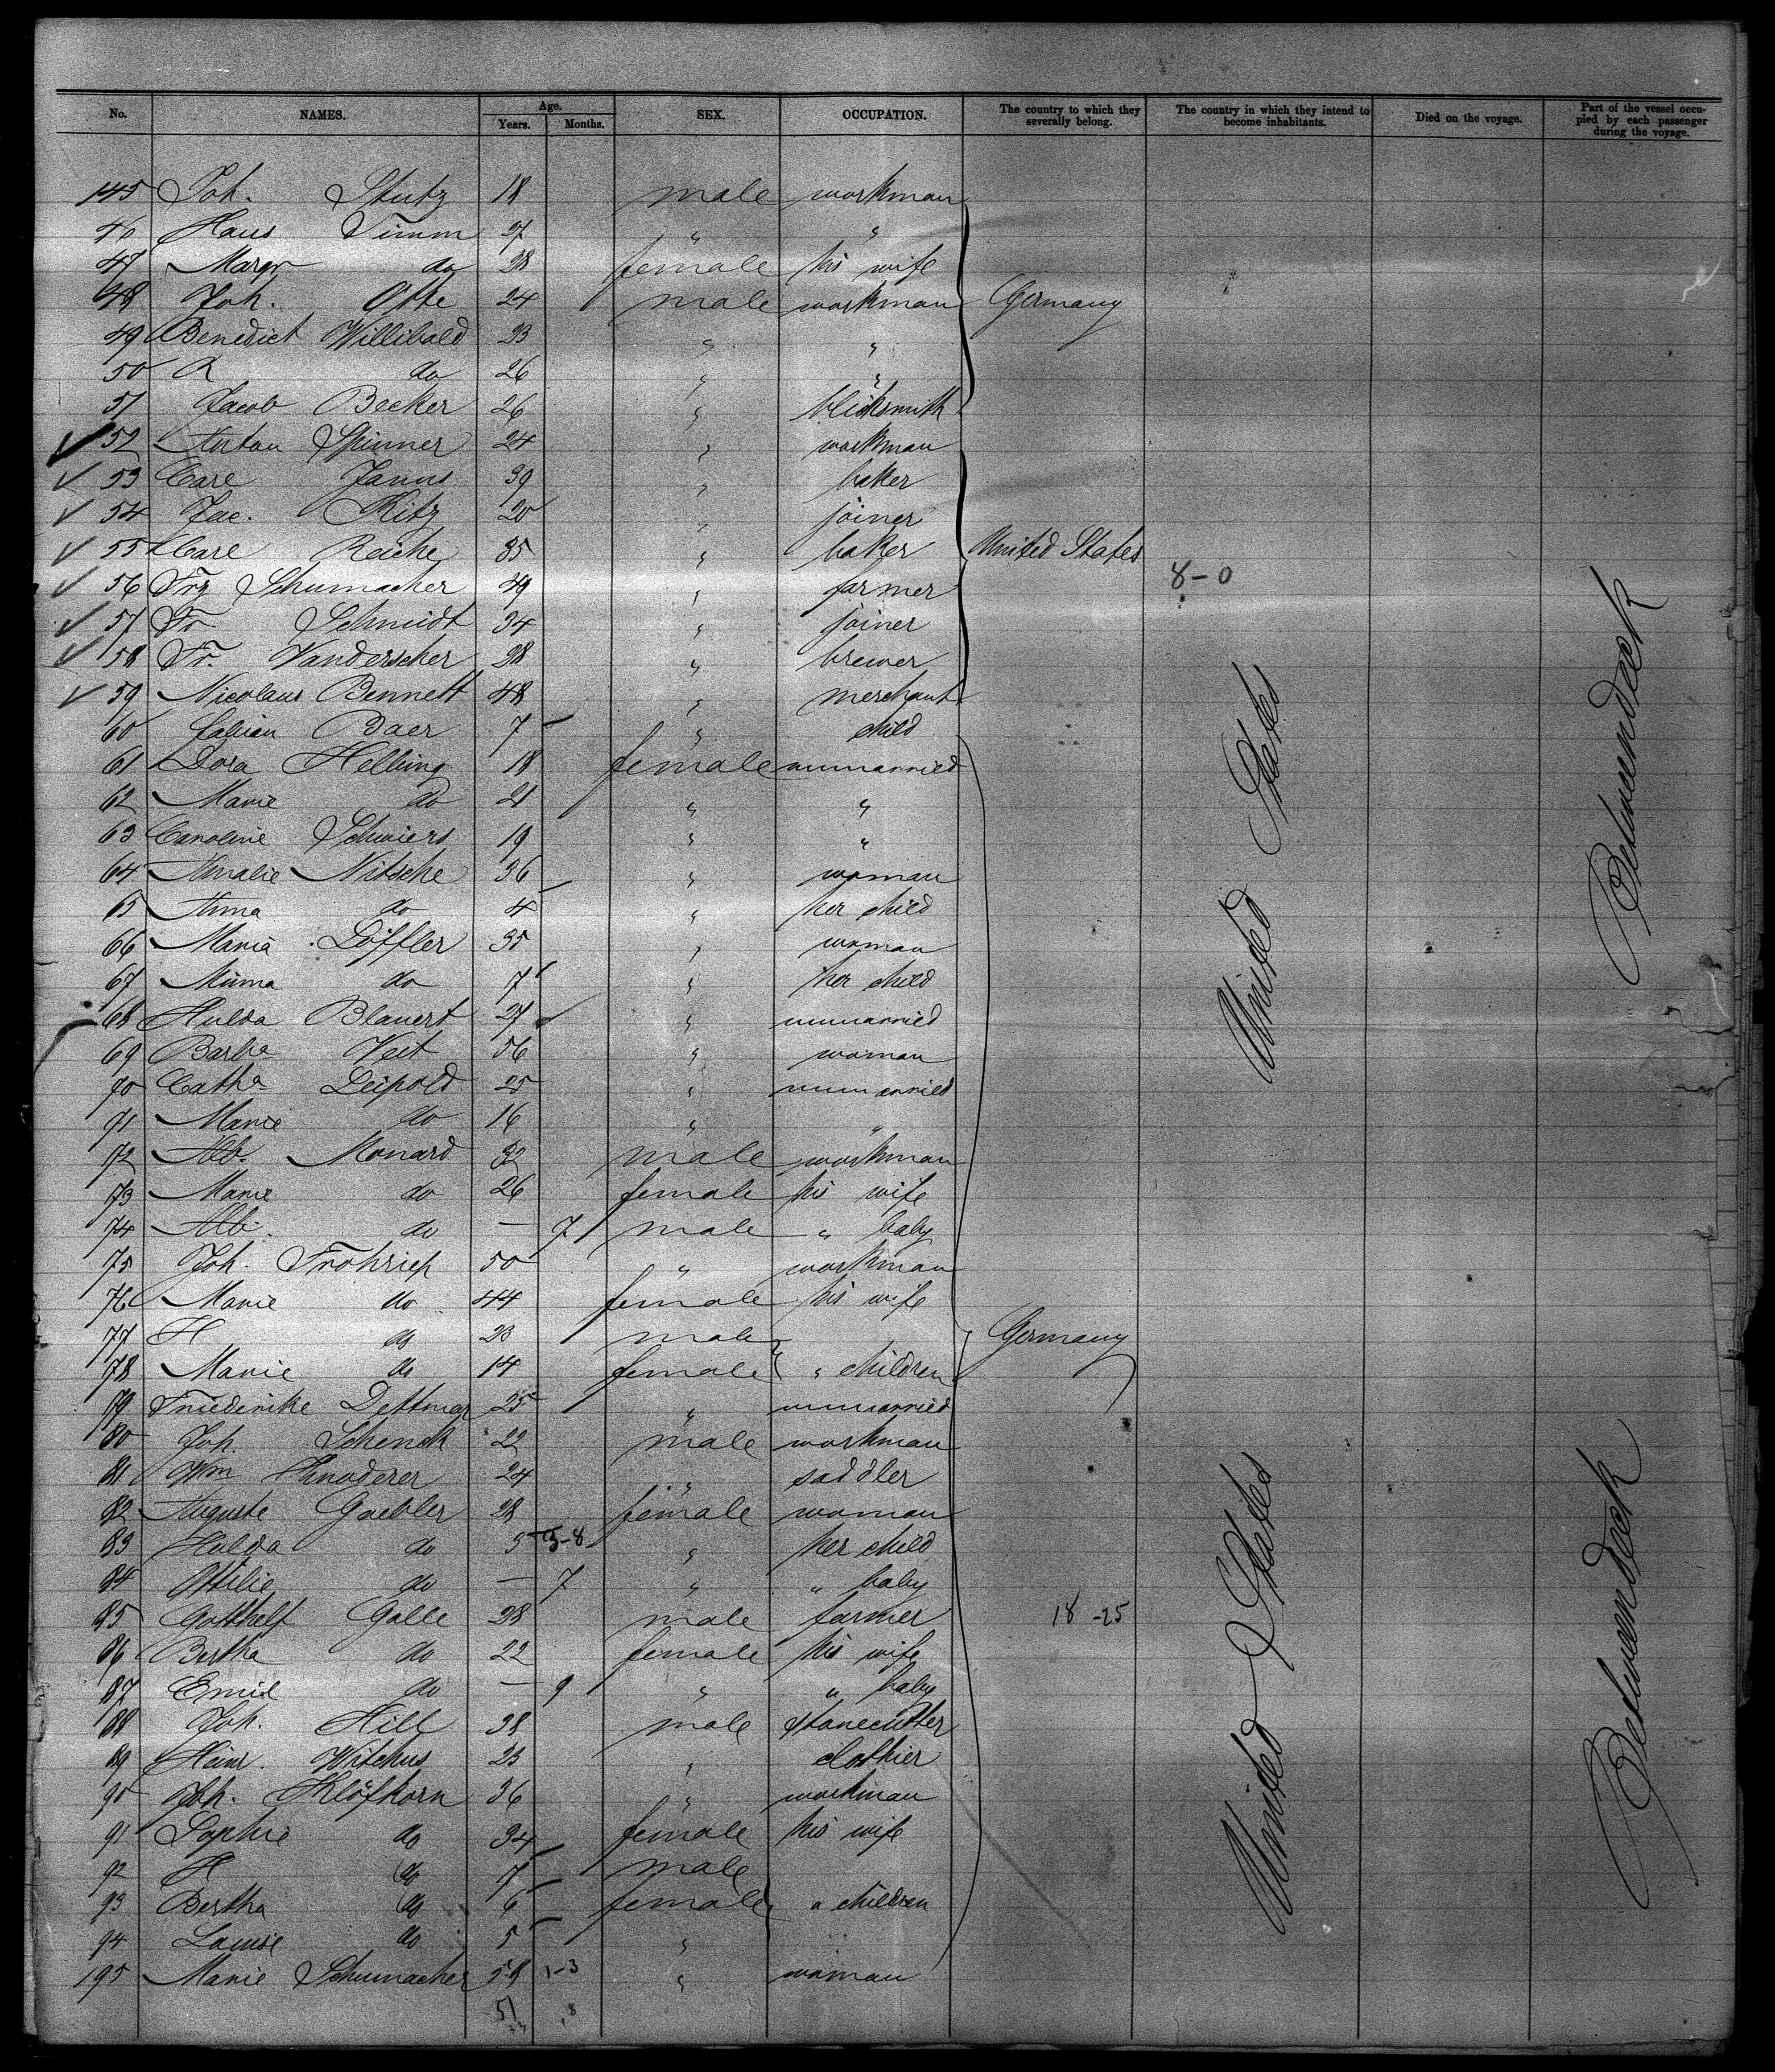 No. NAMES. Age. Years. Months. SEX. OCCUPATION. The country to which they severally belong. The country in which they intend to become inhabitants. Died on the voyage. Part of the vessel occupied by each passenger during the voyage.
145 Joh. Stutz 18 male workman
46 Hans Timm 27 " "
47 Margr do 28 female his wife
48 Joh. Otte 24 male workman Germany
49 Benedict Willibald 23 " "
50 R do 26 " "
51 Jacob Becker 26 " blicksmith
52 Anton Spinner 24 " workman
53 Carl Janus 39 " baker
54 Jac. Ritz 20 " joiner
55 Carl Reiche 35 " baker United States
56 Frz Schumacher 49 " farmer 8-0
57 Fr. Schmidt 34 " joiner
58 Fr. Vanderscher 28 " brewer
59 Nicolaus Bennett 48 " merchant
60 Fabian Baer 7 " child
61 Dora Helbing 18 female unmarried
62 Marie do 21 " "
63 Caroline Schwiers 19 " "
64 Amalie Nitsche 36 " woman
65 Anna do 4 " her child
66 Maria Löffler 35 " woman
67 Minna do 7 " her child
68 Hulda Blauert 27 " unmarried
69 Barba Veit 56 " woman
70 Catha Leipold 25 " unmarried
71 Marie do 16 " "
72 Alb. Monard 32 male workman
73 Marie do 26 female his wife
74 Alb. do — 7 male " baby
75 Joh. Frohriep 50 " workman
76 Marie do 44 female his wife
77 H do 23 male Germany
78 Marie do 14 female " children
79 Friederike Dettmar 25 " unmarried
80 Joh. Schenck 22 male workman
81 Wm Knoderer 24 " saddler
82 Auguste Gaebler 28 female woman
83 Hulda do 5 5-8 " her child
84 Ottilie do — 7 " " baby
85 Gotthelf Galle 28 male farmer 18-25
86 Bertha do 22 female his wife
87 Emil do — 9 " " baby
88 Joh. Hill 38 male stonecutter
89 Heinr. Witchus 25 " clothier
90 Joh. Klöfkorn 36 " workman
91 Sophie do 34 female his wife
92 H do 7 male
93 Bertha do 6 female " children
94 Louise do 5 "
195 Marie Schumacher 58 1-3 " woman
51 8
United States
Betweendeck
United States
Betweendeck